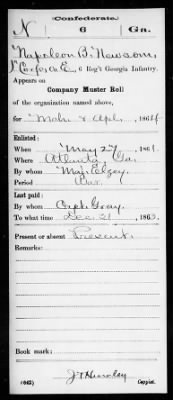 (Confederate.)
N 6 Ga.
Napoleon B. Newsom,
Co. E, 6 Reg't Georgia Infantry.
Appears on
Company Muster Roll
of the organization named above,
for Mch & Apl, 1864.
Enlisted:
When May 27, 1861.
Where Atlanta, Ga.
By whom Maj. Elzey
Period War
Last paid:
By whom Capt. Gray
To what time Dec. 31, 1863.
Present or absent Present.
Remarks:
Book mark:
(642)
Copyist.